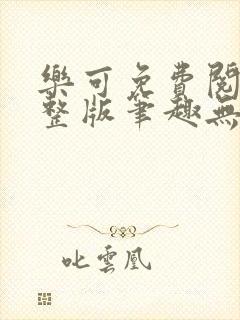 樂可免費閱
整版筆趣無
叱雲凰